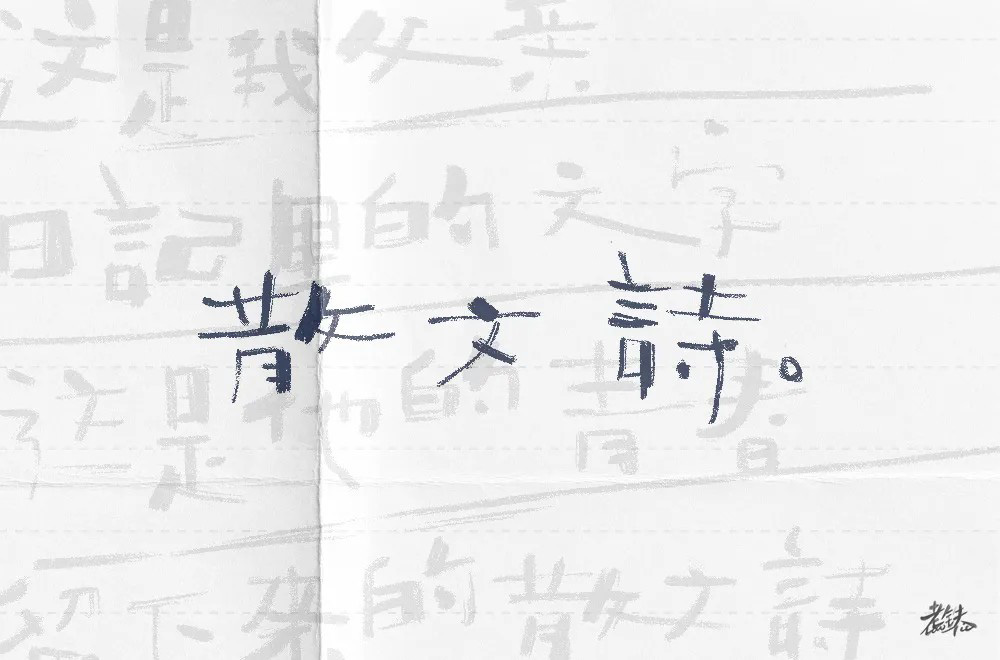 這是我父親
日記裡的文字
散文詩。
這是他的青春
留下來的散文詩